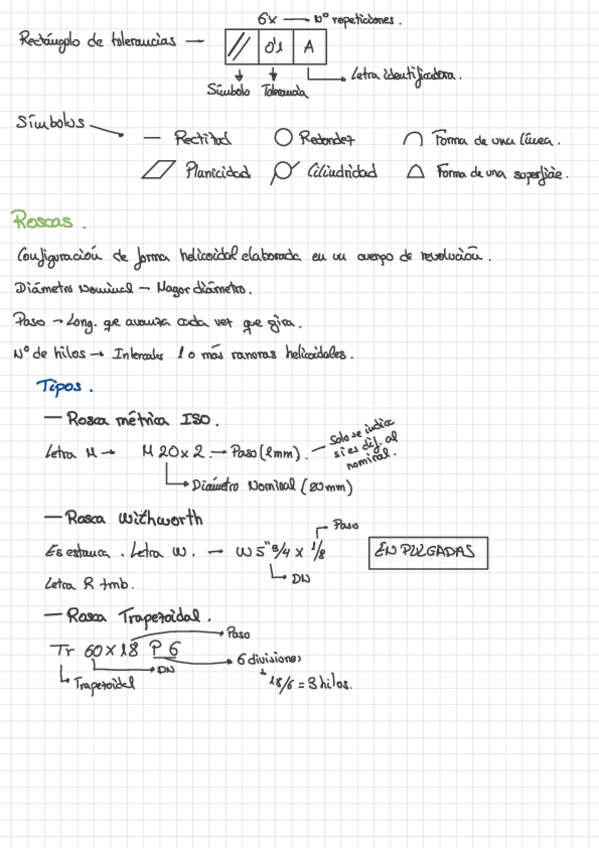 6x — Nº repeticiones.
Rectángulo de tolerancias — // 0'1 A
Letra identificadora.
Símbolo Tolerancia
Símbolos
— Rectitud ○ Redondez ⌒ Forma de una línea.
▱ Planicidad ⌭ Cilindridad ⌓ Forma de una superficie.
Roscas.
Configuración de forma helicoidal elaborada en un cuerpo de revolución.
Diámetro Nominal — Mayor diámetro.
Paso → Long. que avanza cada vez que gira.
Nº de hilos → 1 o más ranuras helicoidales.
Tipos.
— Rosca métrica ISO.
Letra M → M 20 x 2 → Paso (2mm). — Solo se indica
si es dif. al
nominal.
Diámetro Nominal (20mm)
— Rosca Withworth
Paso
Es estanca. Letra W. → W 5"3/4 x 1/8
EN PULGADAS
DN
Letra R tmb.
— Rosca Trapezoidal.
Paso
Tr 60x18 P 6
6 divisiones
DN
Trapezoidal
18/6 = 3 hilos.